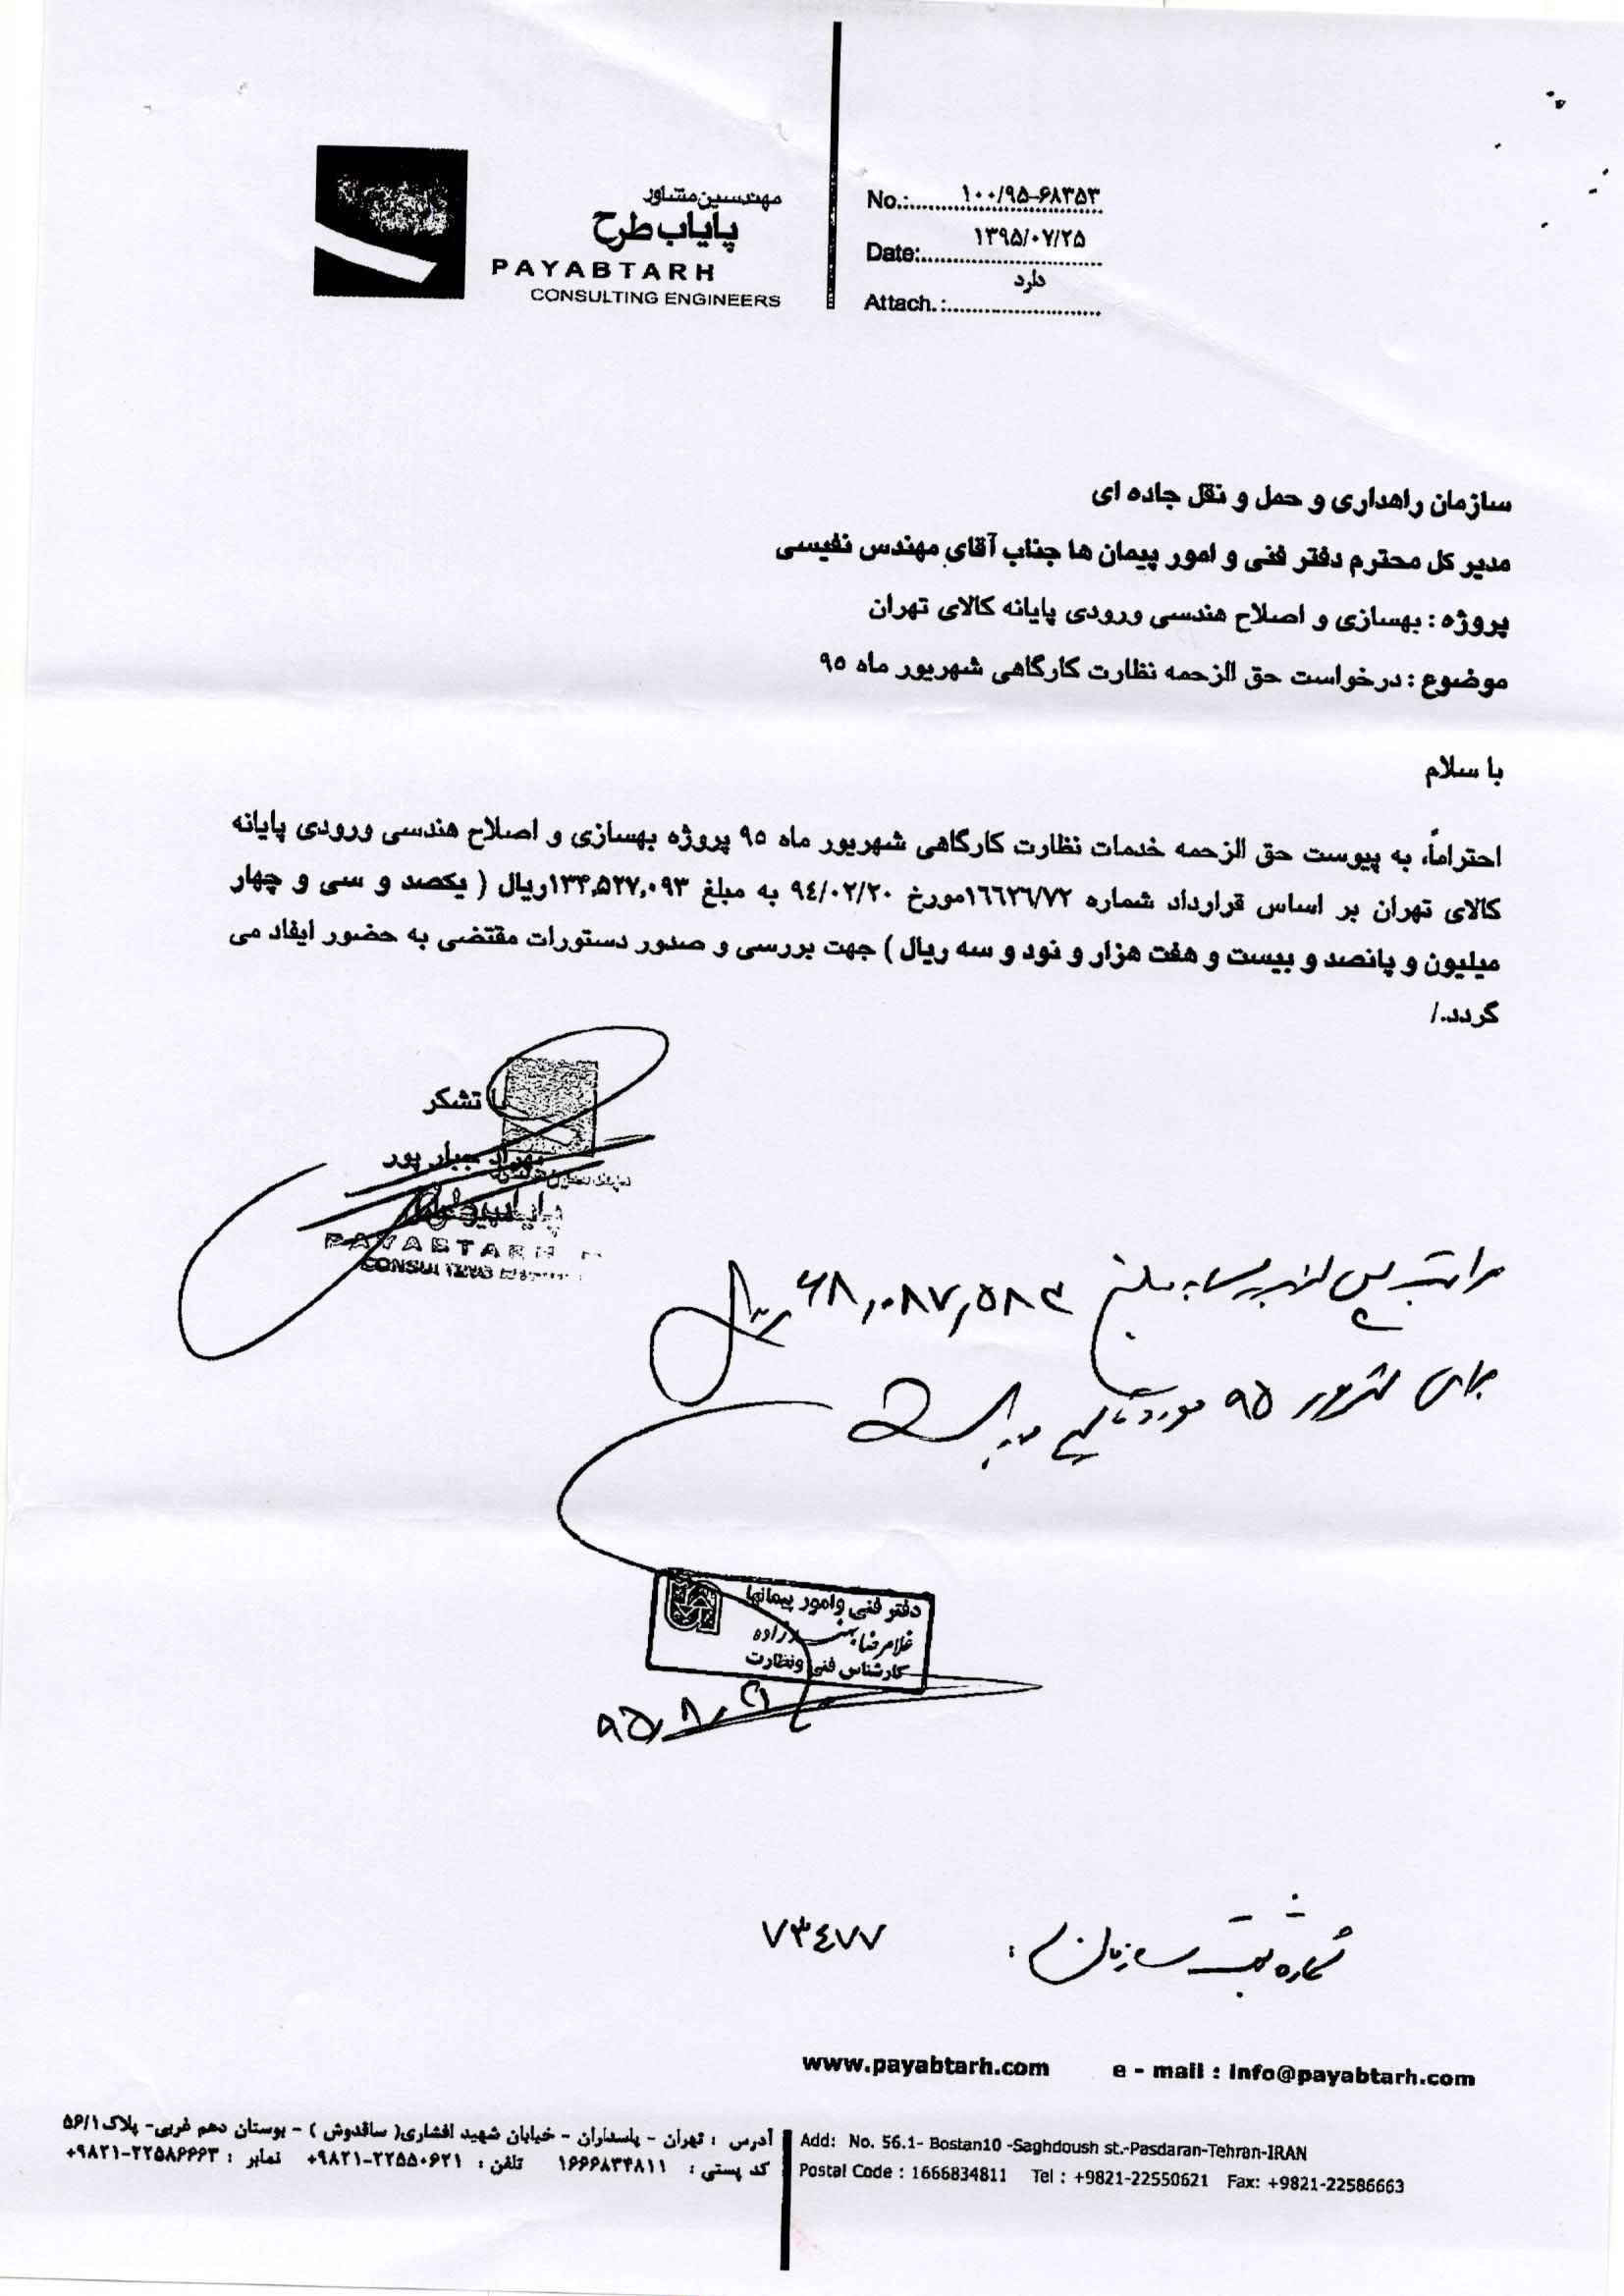 مهندسین مشاور
پایاب طرح
PAYABTARH
CONSULTING ENGINEERS
No.:..... ۱۰۰/۹۵-۶۸۳۵۳
Date:..... ۱۳۹۵/۰۷/۲۵
Attach.:..... دارد
سازمان راهداری و حمل و نقل جاده ای
مدیر کل محترم دفتر فنی و امور پیمان ها جناب آقای مهندس نفیسی
پروژه : بهسازی و اصلاح هندسی ورودی پایانه کالای تهران
موضوع : درخواست حق الزحمه نظارت کارگاهی شهریور ماه ۹۵
با سلام
احتراماً، به پیوست حق الزحمه خدمات نظارت کارگاهی شهریور ماه ۹۵ پروژه بهسازی و اصلاح هندسی ورودی پایانه
کالای تهران بر اساس قرارداد شماره ۱۶۶۲۶/۷۲مورخ ۹٤/۰۲/۲۰ به مبلغ ۱۳۴,۵۲۷,۰۹۳ریال ( یکصد و سی و چهار
میلیون و پانصد و بیست و هفت هزار و نود و سه ریال ) جهت بررسی و صدور دستورات مقتضی به حضور ایفاد می
گردد./
با تشکر
جبار پور
PAYABTARH
CONSULTING
مراتب پس از بررسی به مبلغ ۶۸,۰۸۷,۵۸۳ ریال
برای شهریور ۹۵ مورد تایید میباشد
دفتر فنی وامور پیمانها
غلامرضا
کارشناس فنی ونظارت
شماره ثبت سازمان : ۷۳٤۷۷
www.payabtarh.com e - mail : info@payabtarh.com
آدرس : تهران - پاسداران - خیابان شهید افشاری( ساقدوش ) - بوستان دهم غربی- پلاک ۵۶/۱
کد پستی : ۱۶۶۶۸۳۴۸۱۱ تلفن : ۲۲۵۵۰۶۲۱-۹۸۲۱+ نمابر : ۲۲۵۸۶۶۶۳-۹۸۲۱+
Add: No. 56.1- Bostan10 -Saghdoush st.-Pasdaran-Tehran-IRAN
Postal Code : 1666834811 Tel : +9821-22550621 Fax: +9821-22586663